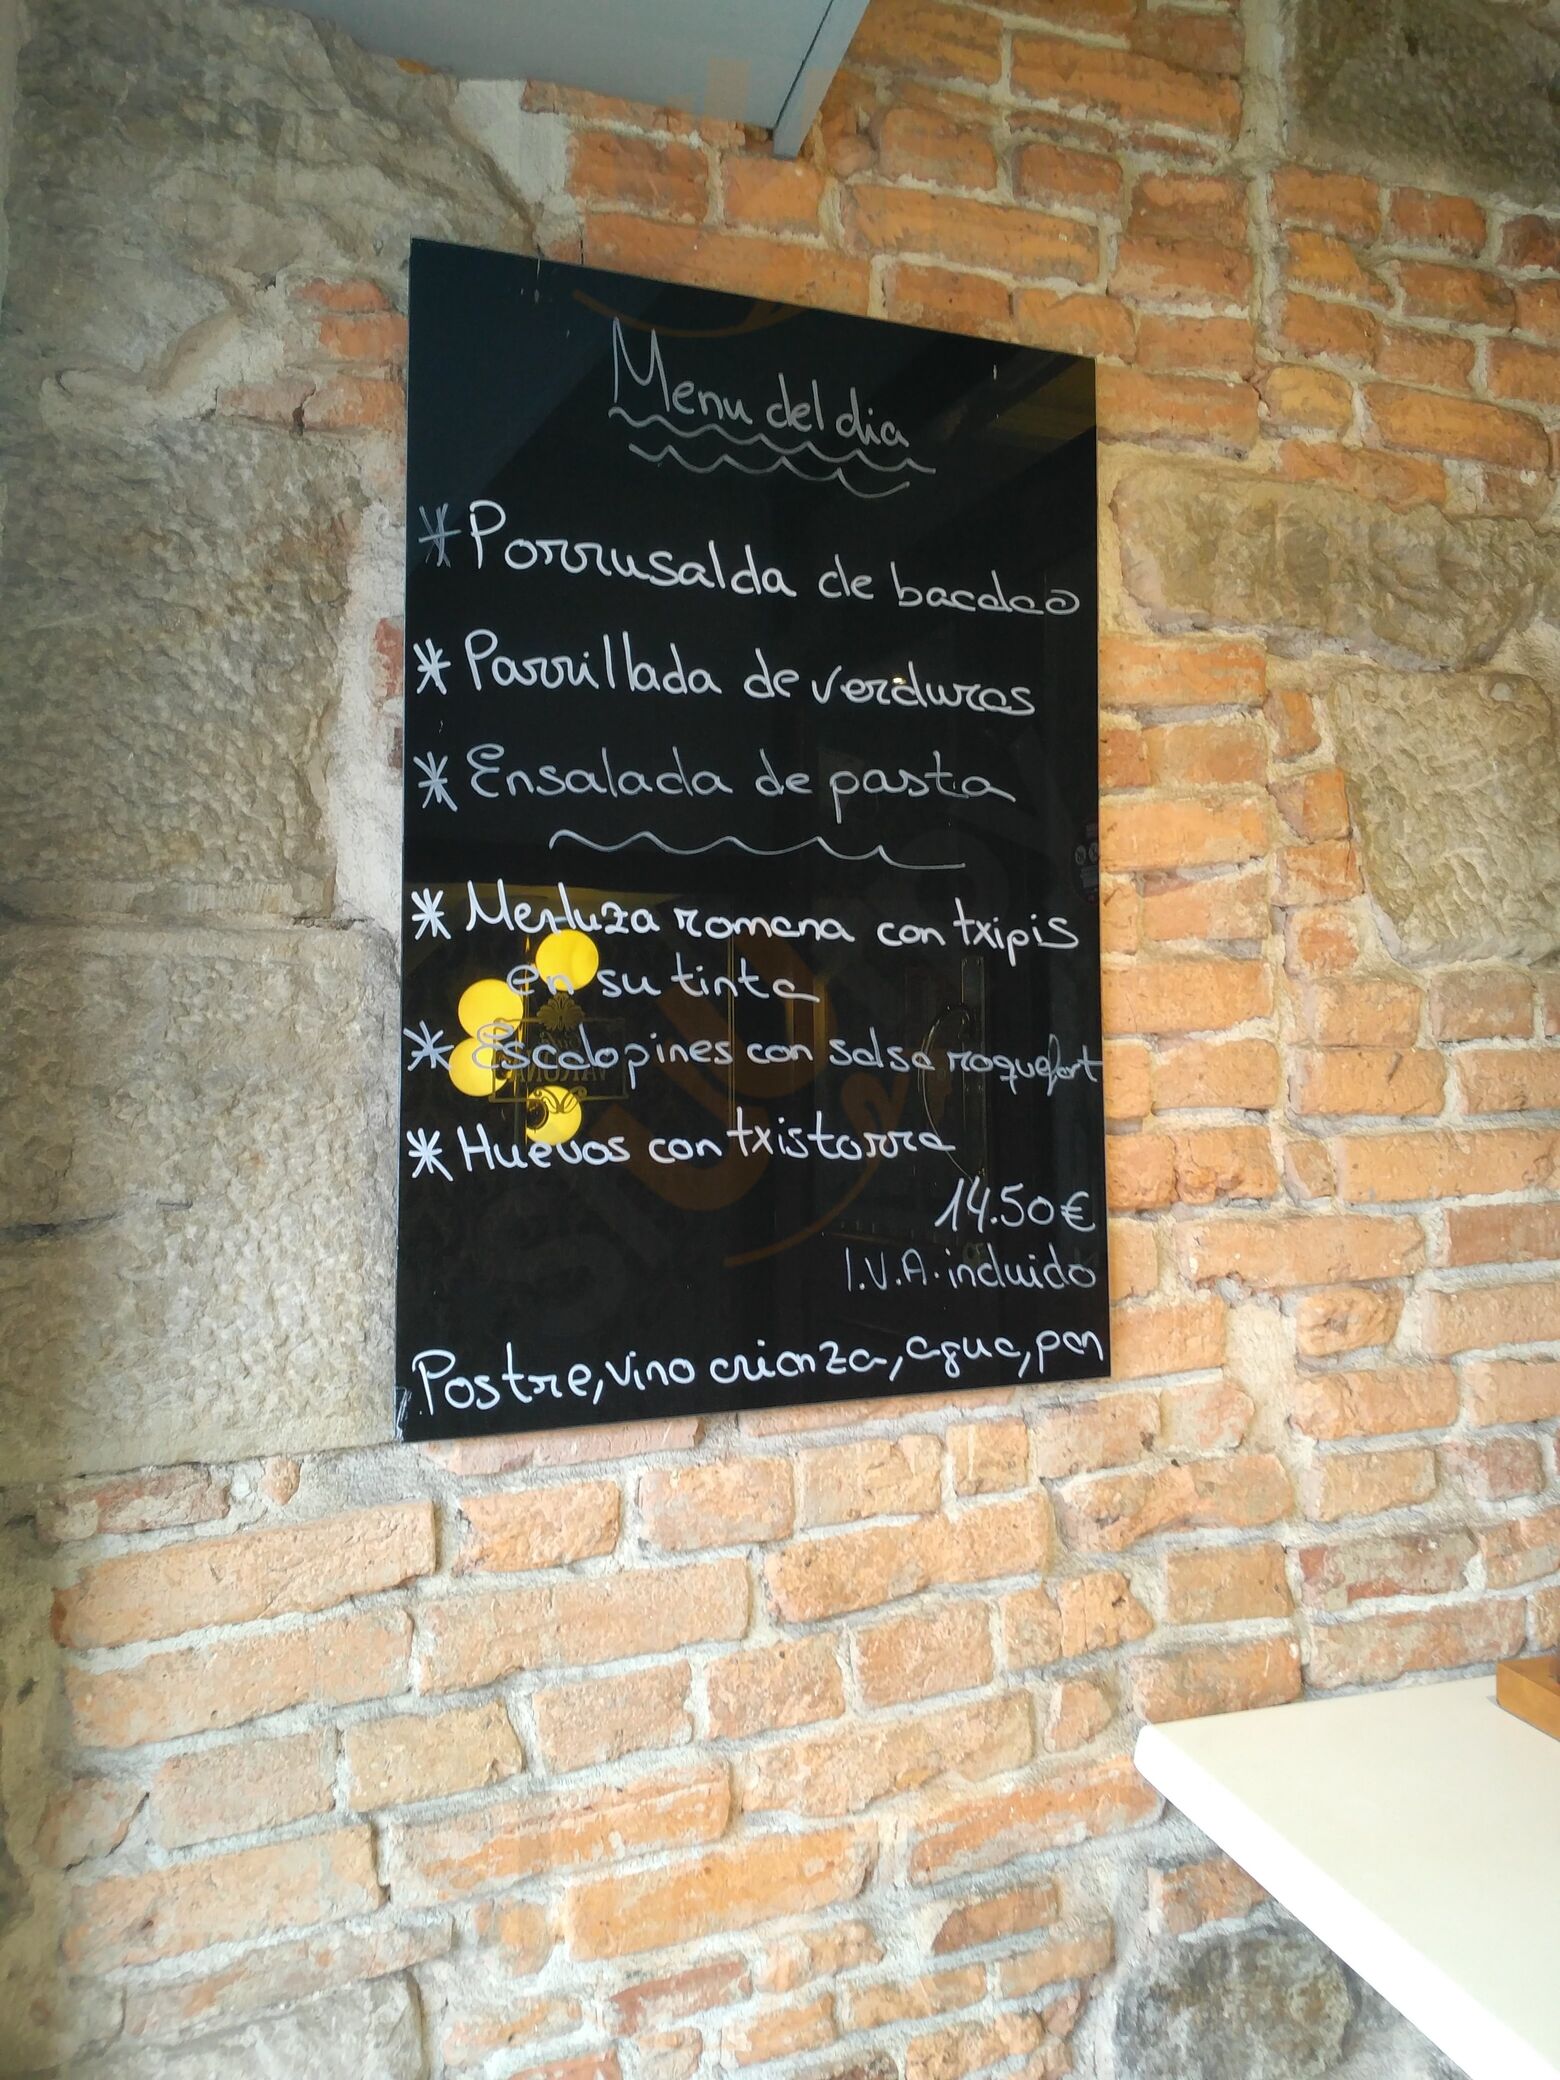 Menu del dia
* Porrusalda de bacalao
* Parrillada de verduras
* Ensalada de pasta
* Merluza romana con txipis
en su tinta
* Escalopines con salsa roquefort
* Huevos con txistorra
14.50€
I.V.A. incluido
Postre, vino crianza, agua, pan